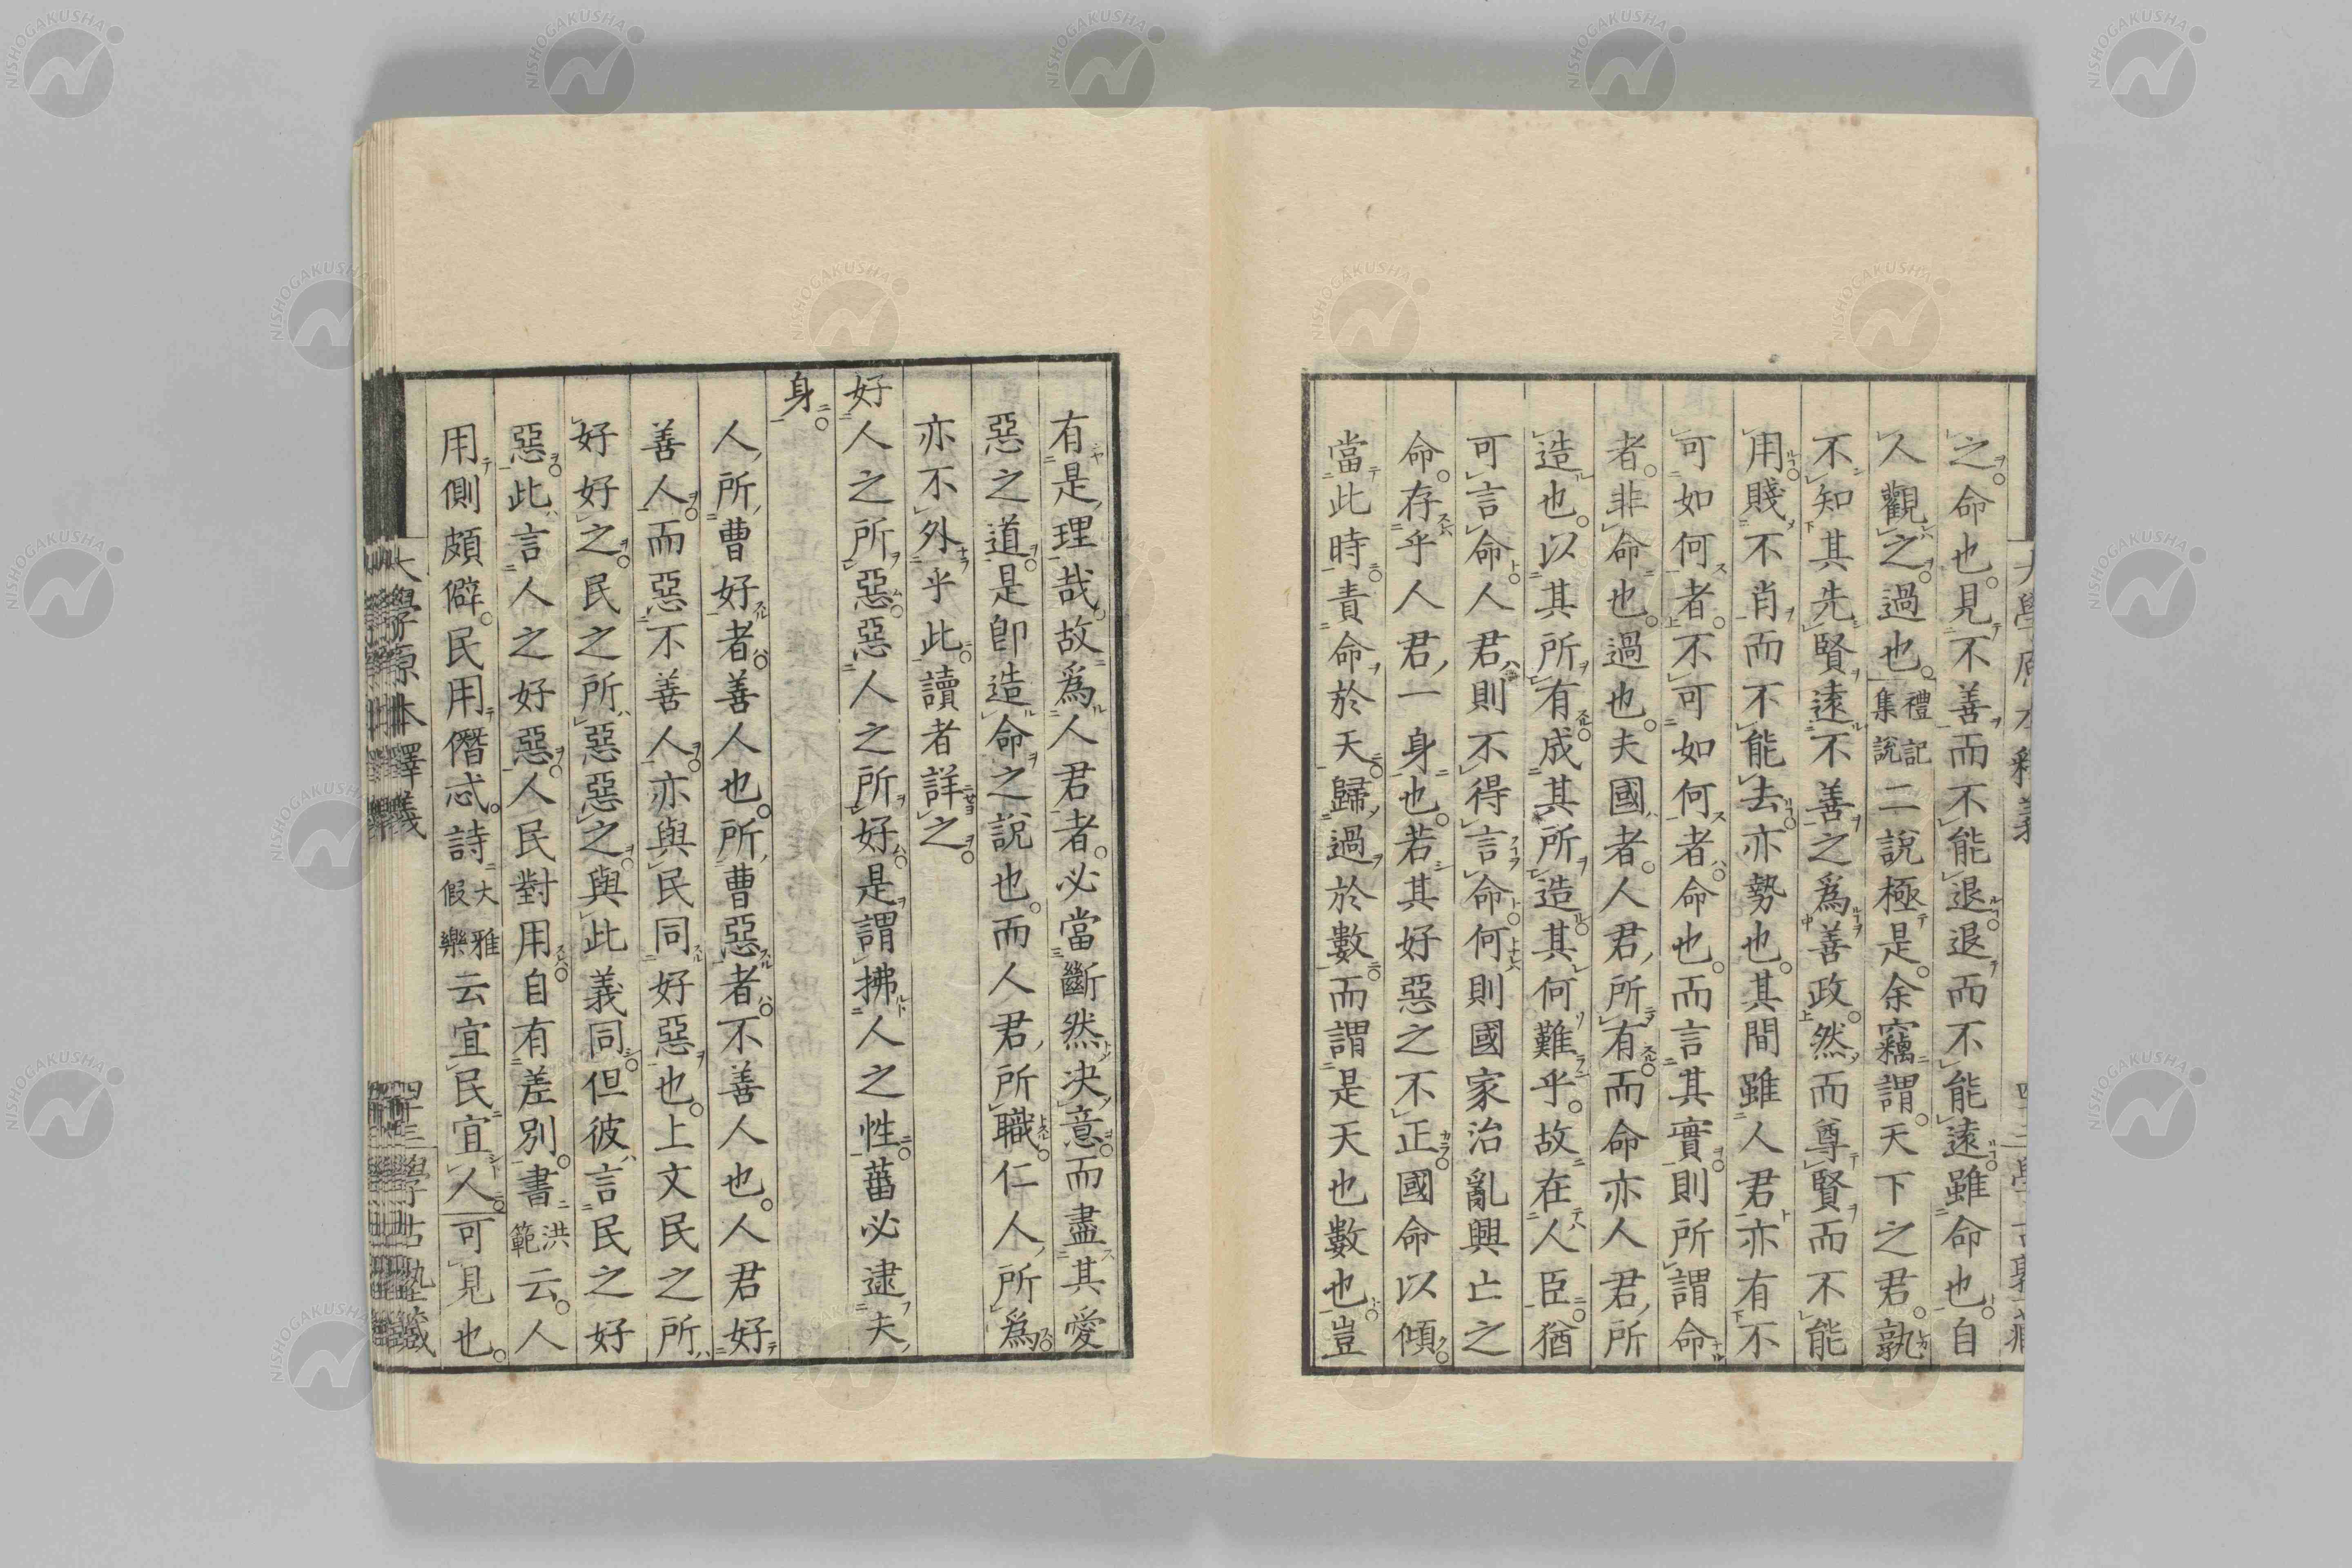 之命也。見不善而不能退退而不能遠雖命也。自
人觀之過也。禮記集說二說極是。余竊謂。天下之君。孰
不知其先賢遠不善之爲善政。然而尊賢而不能
用賤不肖而不能去亦勢也。其間雖人君亦有不
可如何者。不可如何者。命也。而言其實。則所謂命
者。非命也。過也。夫國者。人君所有。而命亦人君所
造也。以其所有成其所造其何難乎。故在人臣。猶
可言命。人君則不得言命。何則國家治亂興亡之
命。存乎人君一身也。若其好惡之不正。國命以傾。
當此時。責命於天。歸過於數。而謂是天也數也。豈
有是理哉。故爲人君者。必當斷然决意。而盡其愛
惡之道。是卽造命之說也。而人君所職。仁人所爲。
亦不外乎此。讀者詳之。
好人之所惡。惡人之所好。是謂拂人之性。菑必逮夫
身。
人所曹好者。善人也。所曹惡者。不善人也。人君好
善人。而惡不善人。亦與民同好惡也。上文民之所
好好之。民之所惡惡之。與此義同。但彼言民之好
惡。此言人之好惡。人民對用。自有差別。書洪範云。人
用側頗僻。民用僭忒。詩大雅假樂云宜民宜人。可見也。
大學原本釋義
四十三